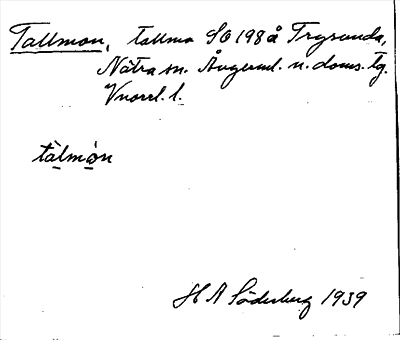 Tallmon, tallmo SO 198 å Trysunda,
Nätra sn. Ångerml. n. doms. tg.
Vnorrl. l.
tàlmòn
H A Söderberg 1939